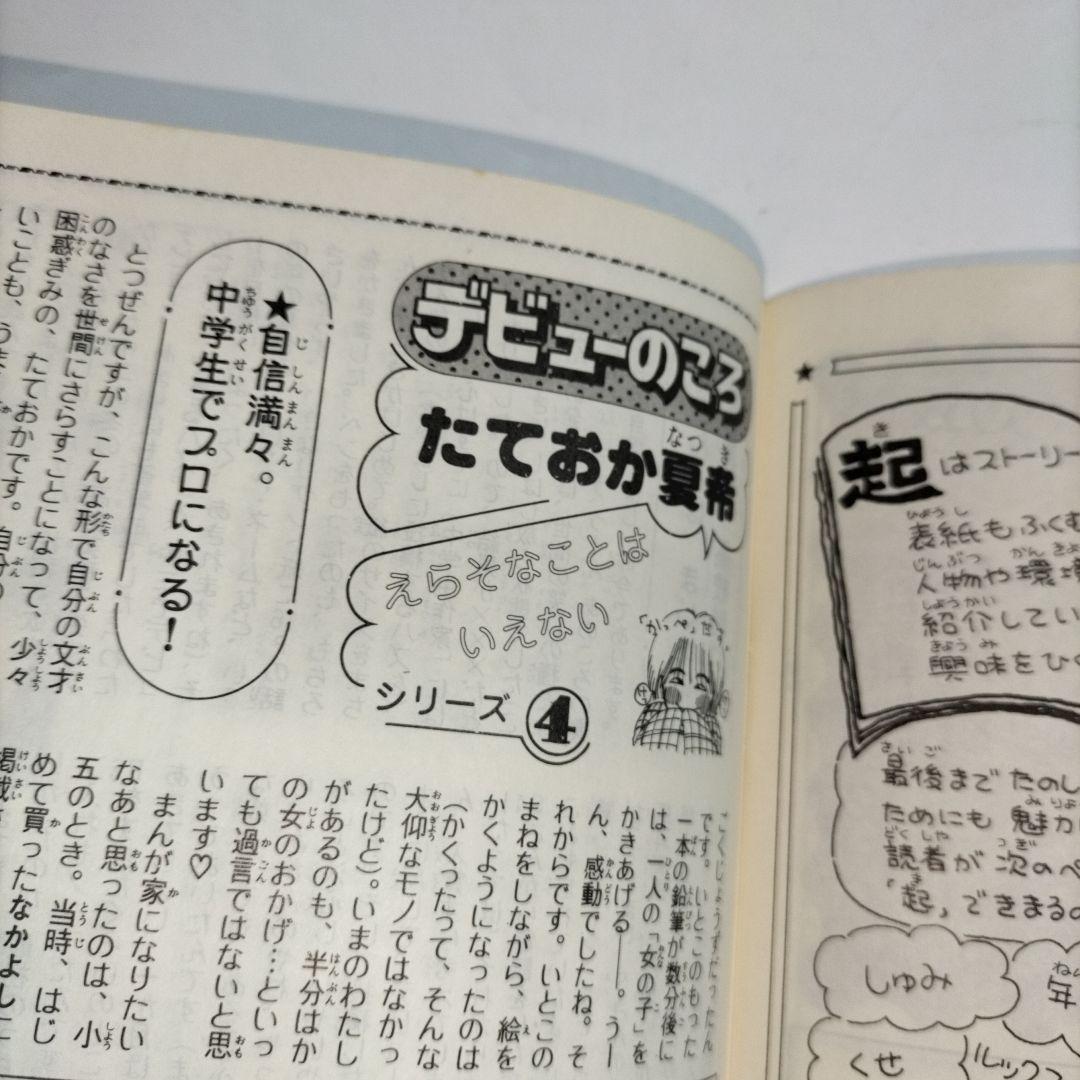 デビューのころ
たておか夏希
なつき
えらそなことは
いえない
シリーズ4
★自信満々。
中学生でプロになる！
とつぜんですが、こんな形で自分の文才
のなさを世間にさらすことになって、少々
困惑ぎみの、たておかです。自分の
いことも、うま
こくじょうずだったん
です。いとこのもった
一本の鉛筆が数分後に
は、一人の「女の子」を
かきあげる――。うー
ん、感動でしたね。そ
れからです。いとこの
まねをしながら、絵を
かくようになったのは
（かくったって、そんな
大仰なモノではなかっ
たけど）。いまのわたし
があるのも、半分はか
の女のおかげ…といっ
ても過言ではないと思
います♡
まんが家になりたい
なあと思ったのは、小
五のとき。当時、はじ
めて買ったなかよしに
掲載さ
★
起はストーリー
表紙もふくむ
人物や環境
紹介してい
興味をひ
最後までたのし
ためにも魅力
読者が次のペ
「起」できまるの
しゅみ
年
くせ
ルックス